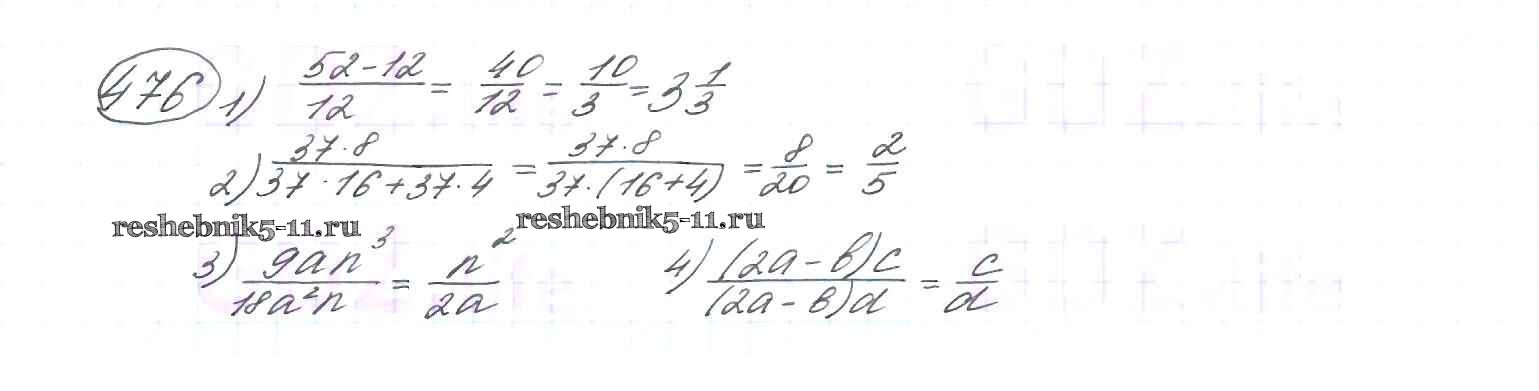 476 1) (52-12)/12 = 40/12 = 10/3 = 3 1/3
2) (37·8)/(37·16+37·4) = (37·8)/(37·(16+4)) = 8/20 = 2/5
reshebnik5-11.ru reshebnik5-11.ru
3) 9an³/18a²n = n²/2a 4) (2a-в)c/(2a-в)d = c/d